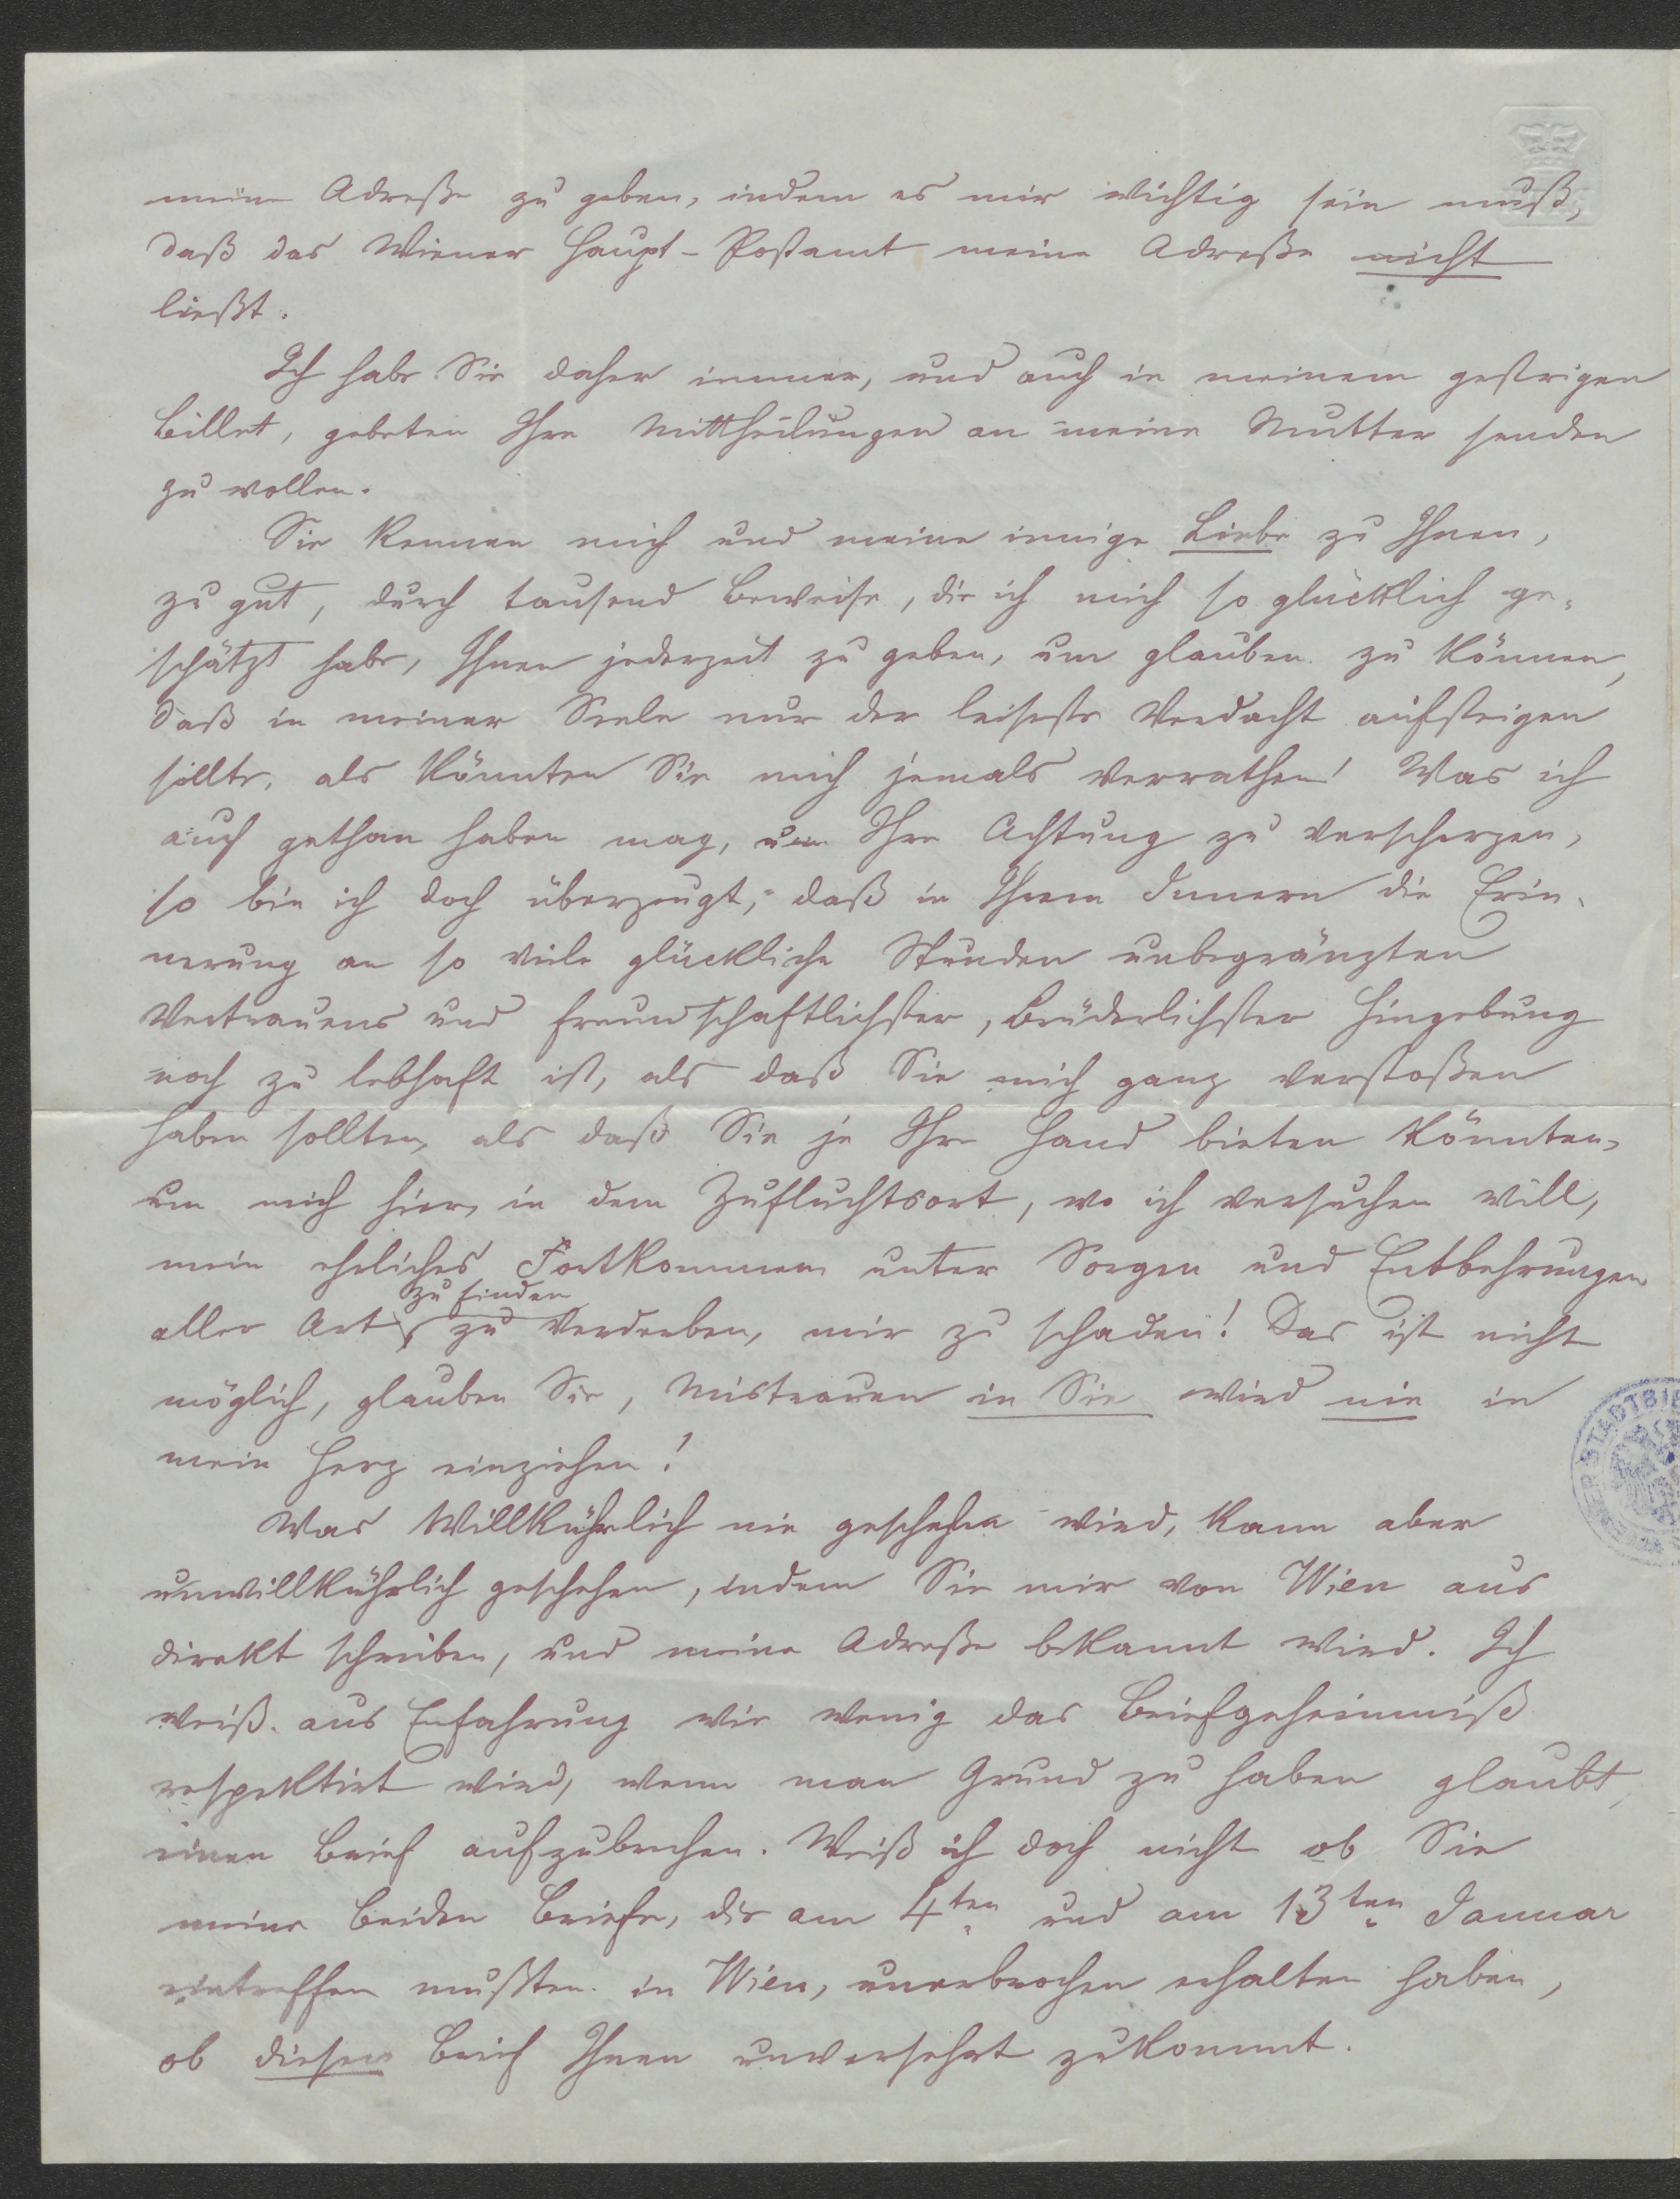 meine Adreße zu geben, indem es mir wichtig sein muß,
daß das Wiener Haupt-Postamt meine Adreße nicht
ließt.
Ich habe Sie daher immer, und auch in meinem gestrigen
Billet, gebeten Ihre Mittheilungen an meine Mutter senden
zu wollen.
Sie kennen mich und meine innige Liebe zu Ihnen,
zu gut, durch tausend Beweise, die ich mich so glücklich ge=
schätzt habe, Ihnen jederzeit zu geben, um glauben zu können,
daß in meiner Seele nur der leiseste Verdacht aufsteigen
sollte, als könnten Sie mich jemals verrathen! Was ich
auch gethan haben mag, um Ihre Achtung zu verscherzen,
so bin ich doch überzeugt, daß in Ihrem Innern die Erin-
nerung an so viele glückliche Stunden unbegränzten
Vertrauens und freundschaftlichster, brüderlichster Hingebung
noch zu lebhaft ist, als daß Sie mich ganz verstoßen
haben sollten, als daß Sie je Ihre Hand bieten könnten,
um mich hier, in dem Zufluchtsort, wo ich versuchen will,
mein ehrliches Fortkommen unter Sorgen und Entbehrungen
zu finden
aller Art, zu verderben, mir zu schaden! Das ist nicht
möglich, glauben Sie, Mistrauen in Sie wird nie in
mein Herz einziehen!
Was willkührlich nie geschehen wird, kann aber
unwillkührlich geschehen, indem Sie mir von Wien aus
direkt schreiben, und meine Adreße bekannt wird. Ich
weiß aus Erfahrung wie wenig das Briefgeheimniß
respektirt wird, wenn man Grund zu haben glaubt,
einen Brief aufzubrechen. Weiß ich doch nicht ob Sie
meine beiden Briefe, die am 4ten und am 13ten Januar
eintreffen mußten in Wien, unerbrochen erhalten haben,
ob dieser Brief Ihnen unversehrt zukommt.